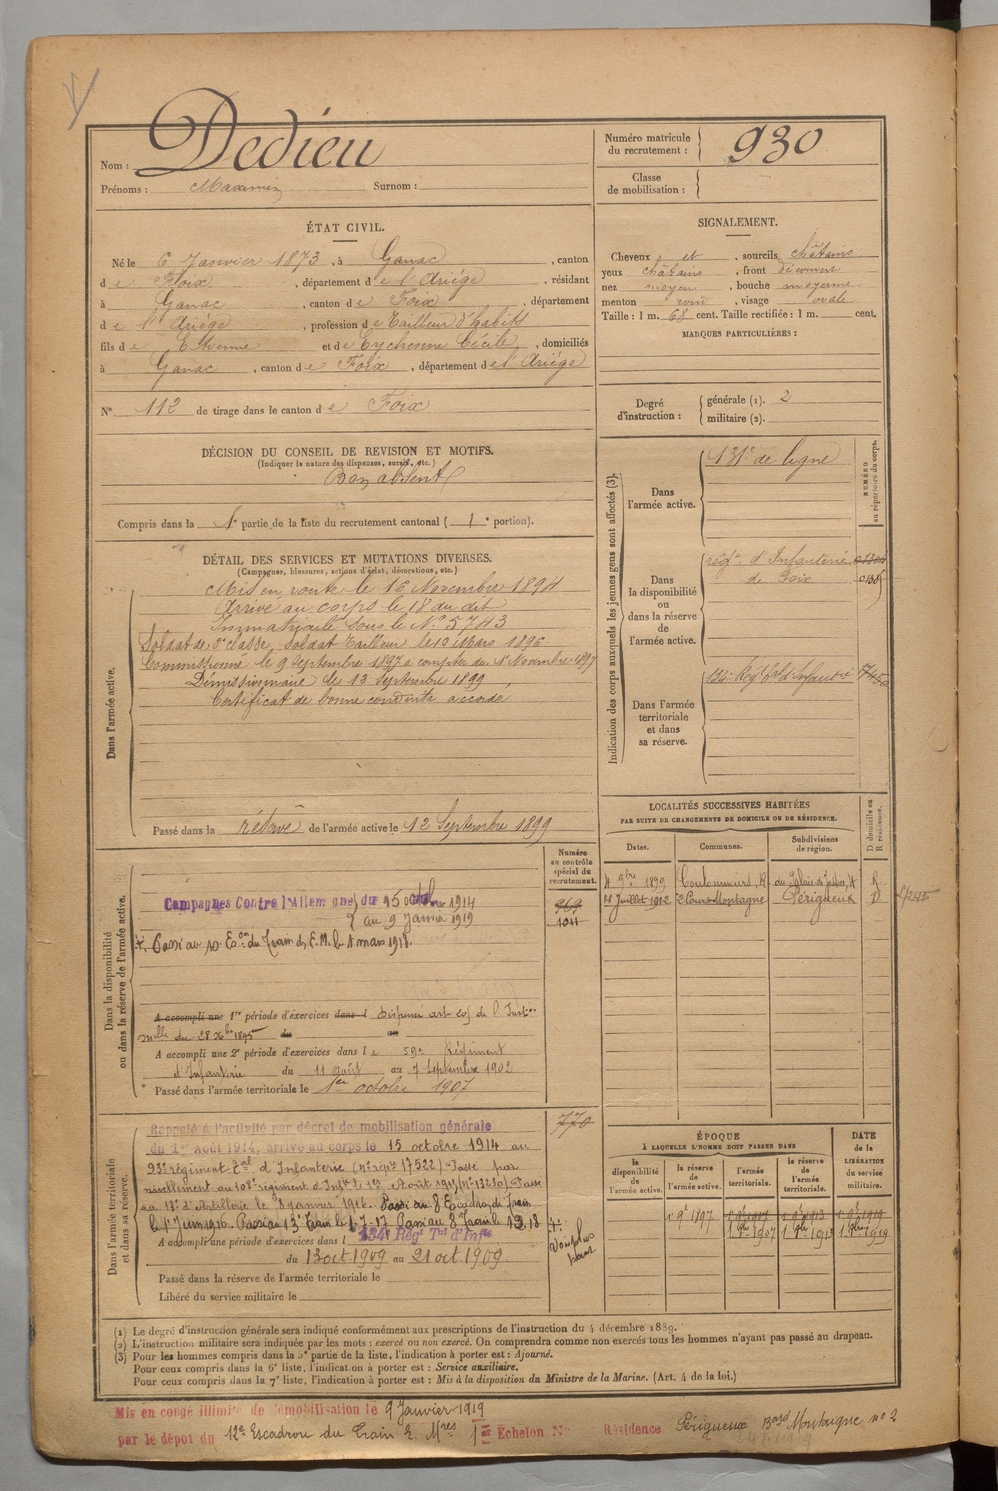 Nom : Dedieu
Prénoms : Maximin Surnom :
Numéro matricule du recrutement : 930
Classe de mobilisation :
ÉTAT CIVIL.
Né le 6 Janvier 1873, à Ganac, canton
de Foix, département de l'Ariége, résidant
à Ganac, canton de Foix, département
de l'Ariége, profession de tailleur d'habits
fils de Etienne et de Eychenne Cécile, domiciliés
à Ganac, canton de Foix, département de l'Ariége
N° 112 de tirage dans le canton de Foix
SIGNALEMENT.
Cheveux et, sourcils châtains
yeux châtains, front découvert
nez moyen, bouche moyenne
menton rond, visage ovale
Taille : 1 m. 68 cent. Taille rectifiée : 1 m. cent.
MARQUES PARTICULIÈRES :
Degré d'instruction : générale (1). 2
militaire (2).
DÉCISION DU CONSEIL DE REVISION ET MOTIFS.
(Indiquer la nature des dispenses, sursis, etc.)
Bon absent
Compris dans la 1e partie de la liste du recrutement cantonal ( 1e portion).
DÉTAIL DES SERVICES ET MUTATIONS DIVERSES.
(Campagnes, blessures, actions d'éclat, décorations, etc.)
Dans l'armée active.
Mis en route le 16 Novembre 1894
Arrivé au corps le 18 du dit
Immatriculé sous le N° 5743
Soldat de 2e classe, soldat tailleur le 10 Mars 1896
Commissionné le 9 Septembre 1897 à compter du 1er Novembre 1897
Démissionnaire le 12 Septembre 1899
Certificat de bonne conduite accordé
Passé dans la réserve de l'armée active le 12 Septembre 1899
Indication des corps auxquels les jeunes gens sont affectés (3).
NUMÉRO au répertoire du corps.
Dans l'armée active.
131e de ligne
Dans la disponibilité ou dans la réserve de l'armée active.
régt d'Infanterie
de Foix
Dans l'armée territoriale et dans sa réserve.
134e Régt tal d'Infanterie
LOCALITÉS SUCCESSIVES HABITÉES
PAR SUITE DE CHANGEMENTS DE DOMICILE OU DE RÉSIDENCE.
Dates. Communes. Subdivisions de région. D domicile ou R résidence.
4 9bre 1899 Coulommiers, R. du Palais de Justice, 4 R
4 Juillet 1912 2 Cours Montaigne Périgueux D
Dans la disponibilité ou dans la réserve de l'armée active.
Numéro au contrôle spécial du recrutement.
969
1011
Campagnes Contre l'Allemagne du 15 octobre 1914
au 9 Janvier 1919
Passé au 10e Eson du Train des E. M. le 1 mars 1918.
A accompli une 1re période d'exercices dans l Dispensé art 20 de l'Inst
melle du 28 Xbre 1895 du au
A accompli une 2e période d'exercices dans le 59e Régiment
d'Infanterie du 11 août au 7 Septembre 1902
Passé dans l'armée territoriale le 1er octobre 1907
Dans l'armée territoriale et dans sa réserve.
770
Rappelé à l'activité par décret de mobilisation générale
du 1er Août 1914, arrivé au corps le 15 octobre 1914 au
93e régiment tal d'Infanterie (N° répre 17522) Passé par
nivellement au 108e régiment d'Infie le 12 Août 1915 (N° 13230). Passé
au 17e d'Artillerie le 8 janvier 1916. Passé au 8 Escadron du Train
le 1er Juin 1916. Passé au 13e Train le 1-7-17 Passé au 8 Train le
A accompli une période d'exercices dans l 134e Régt Tal d'Infie
du 13 oct 1909 au 21 oct. 1909
Passé dans la réserve de l'armée territoriale le
Libéré du service militaire le
ÉPOQUE
À LAQUELLE L'HOMME DOIT PASSER DANS
la disponibilité de l'armée active. la réserve de l'armée active. l'armée territoriale. la réserve de l'armée territoriale.
DATE de la LIBÉRATION du service militaire.
1 9e 1897
1 8bre 1907 1 8bre 1913 1 8bre 1919
(1) Le degré d'instruction générale sera indiqué conformément aux prescriptions de l'instruction du 4 décembre 1889.
(2) L'instruction militaire sera indiquée par les mots : exercé ou non exercé. On comprendra comme non exercés tous les hommes n'ayant pas passé au drapeau.
(3) Pour les hommes compris dans la 5e partie de la liste, l'indication à porter est : Ajourné.
Pour ceux compris dans la 6e liste, l'indication à porter est : Service auxiliaire.
Pour ceux compris dans la 7e liste, l'indication à porter est : Mis à la disposition du Ministre de la Marine. (Art. 4 de la loi.)
Mis en congé illimité de démobilisation le 9 Janvier 1919
par le dépôt du 12e Escadron du Train E. Mres 1er Echelon N° Résidence Périgueux Bard Montaigne n° 2